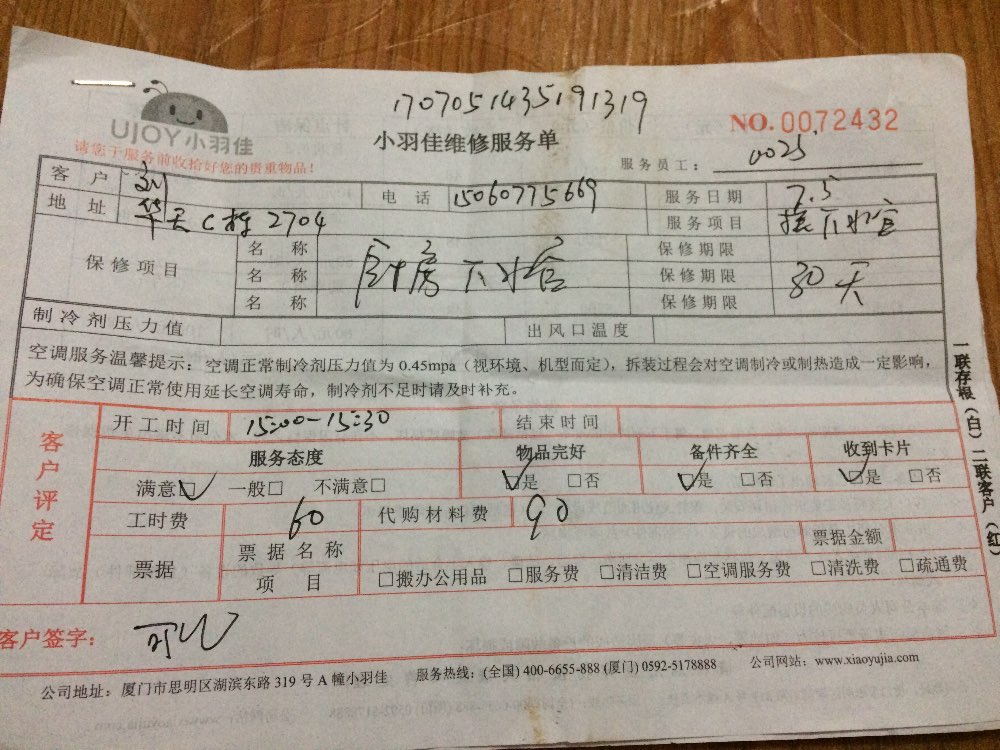 1707051435191319
UJOY小羽佳
小羽佳维修服务单
NO.0072432
请您于服务前收拾好您的贵重物品!
服务员工: 0025
客户 刘 电话 15060775669 服务日期 7.5
地址 华天C栋2704 服务项目 接下水管
保修项目 名称 厨房下水管 保修期限 30天
名称 保修期限
名称 保修期限
制冷剂压力值 出风口温度
空调服务温馨提示:空调正常制冷剂压力值为 0.45mpa(视环境、机型而定),拆装过程会对空调制冷或制热造成一定影响,
为确保空调正常使用延长空调寿命,制冷剂不足时请及时补充。
客户评定
开工时间 15:00-15:30 结束时间
服务态度 物品完好 备件齐全 收到卡片
满意☑ 一般□ 不满意□ ☑是 □否 ☑是 □否 ☑是 □否
工时费 60 代购材料费 90
票据 票据名称 票据金额
项目 □搬办公用品 □服务费 □清洁费 □空调服务费 □清洗费 □疏通费
客户签字: 可以
公司地址:厦门市思明区湖滨东路 319 号 A 幢小羽佳 服务热线:(全国) 400-6655-888 (厦门) 0592-5178888 公司网站:www.xiaoyujia.com
一联存根(白) 二联客户(红)